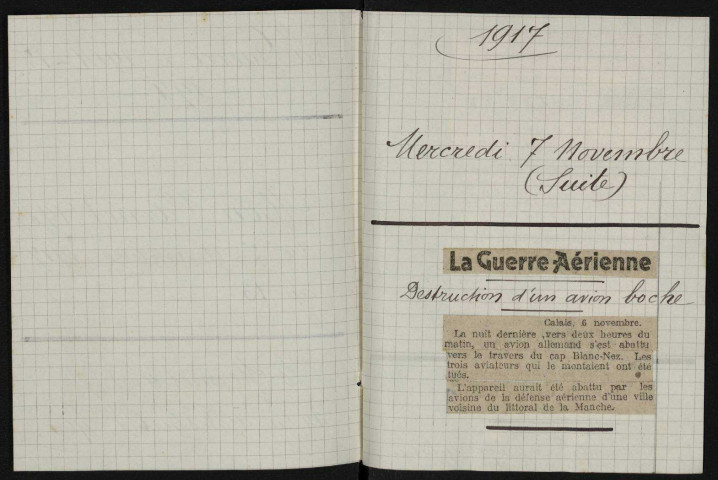 1917
Mercredi 7 Novembre
(Suite)
La Guerre Aérienne
Destruction d'un avion boche
Calais, 5 novembre.
La nuit dernière, vers deux heures du
matin, un avion allemand s'est abattu
vers le travers du cap Blanc-Nez. Les
trois aviateurs qui le montaient ont été
tués.
L'appareil aurait été abattu par les
avions de la défense aérienne d'une ville
voisine du littoral de la Manche.